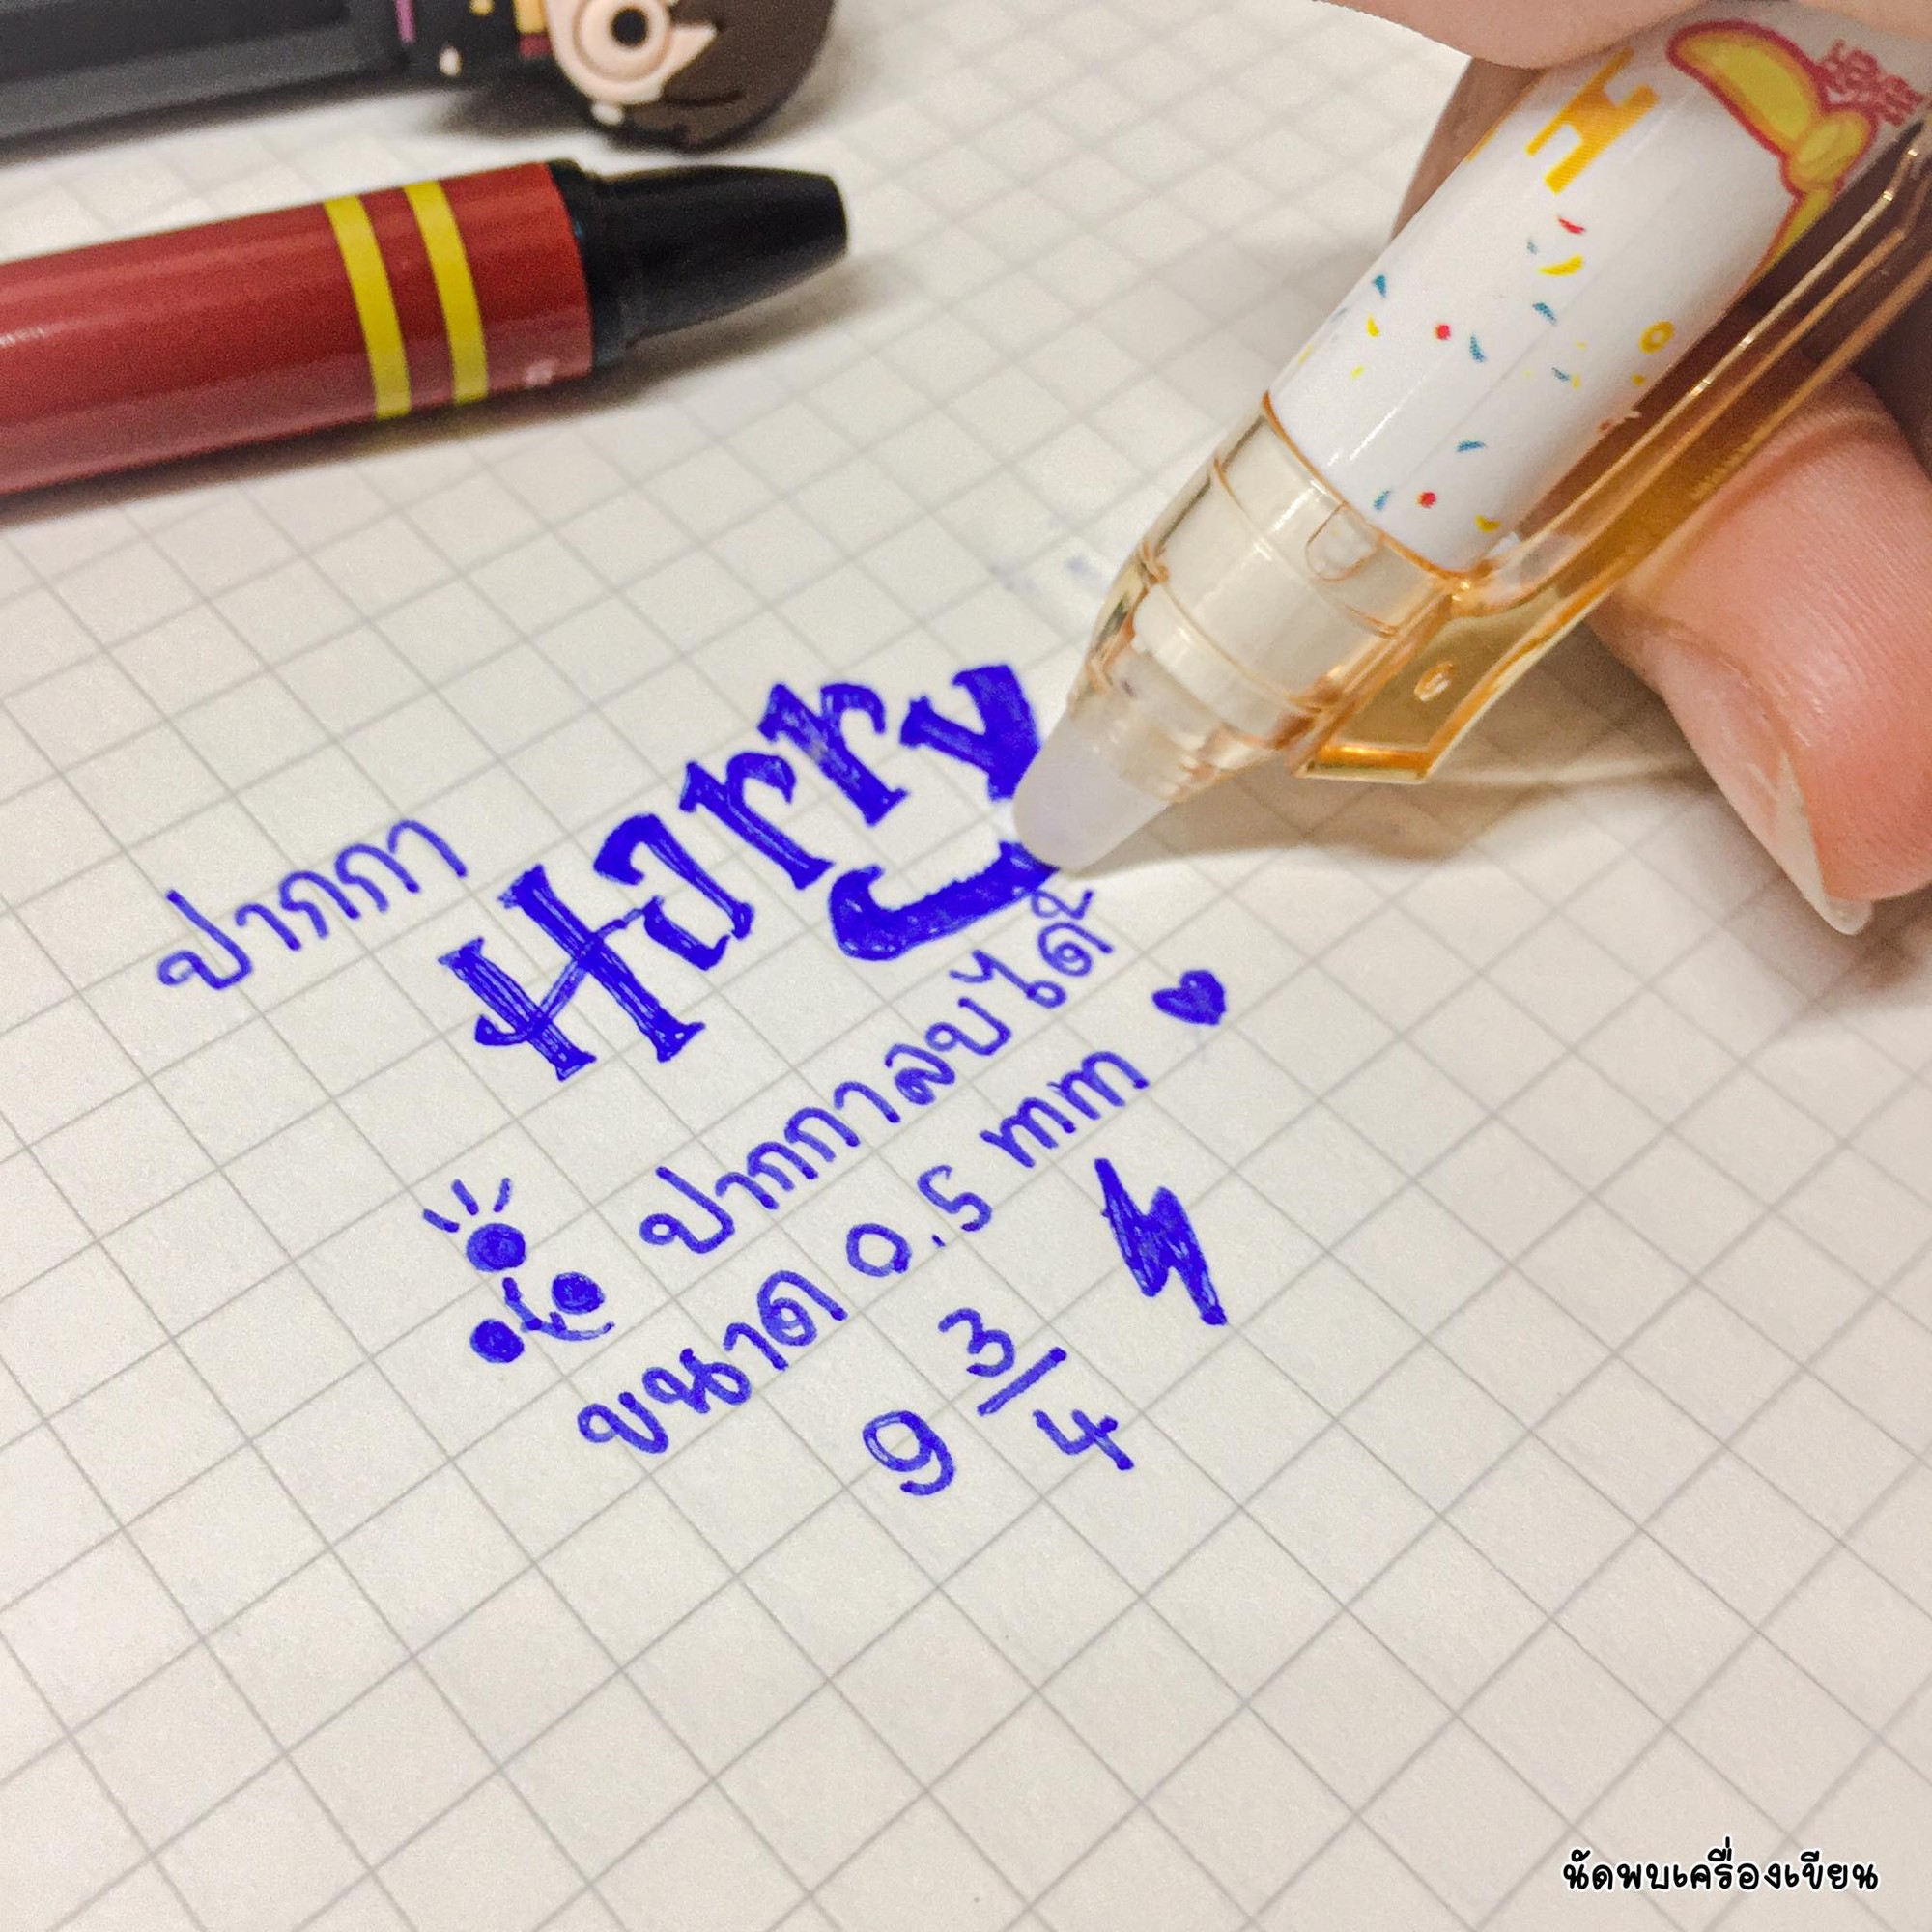 ปากกา Harry
ปากกาลบได้
ขนาด 0.5 mm
9 3/4
H
นัดพบเครื่องเขียน